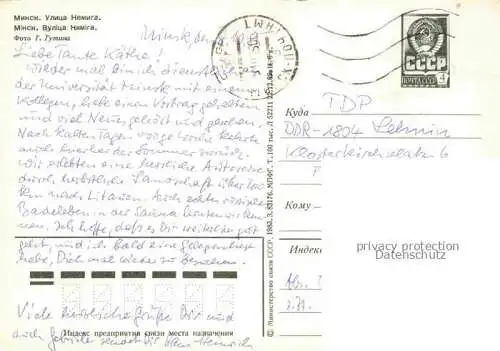 Минск. Улица Немига.
Мінск. Вуліца Няміга.
Фото Г. Гутина
Minsk, den
Liebe Tante Käthe!
Wieder mal bin ich dienstlich
der Universität Minsk mit einem
Kollegen, habe einen Vortrag gehalten
und viel Neues gehört und gesehen.
Nach kalten Tagen voriger Woche kehrte
auch hierher der Sommer zurück.
Wir erlebten eine herrliche Autoreise
durch herbstliche Landschaft über
km nach Litauen. Auch
Badeleben in der Sauna lernten wir ken-
nen. Ich hoffe, daß es Dir weiterhin gut
geht und ich bald eine Gelegenheit
habe, Dich mal wieder zu besuchen.
Viele herzliche Grüße Dir und
auch sendet Dir Hans Heinrich
Индекс предприятия связи места назначения
© Министерство связи СССР. 1983. З. 83176. МПФГ. Т. 100 тыс.
СССР
ПОЧТА
4
Куда TDP
DDR-1804 Lehnin
Klosterkirchplatz 6
Кому
Индекс
Abs.
privacy protection
Datenschutz